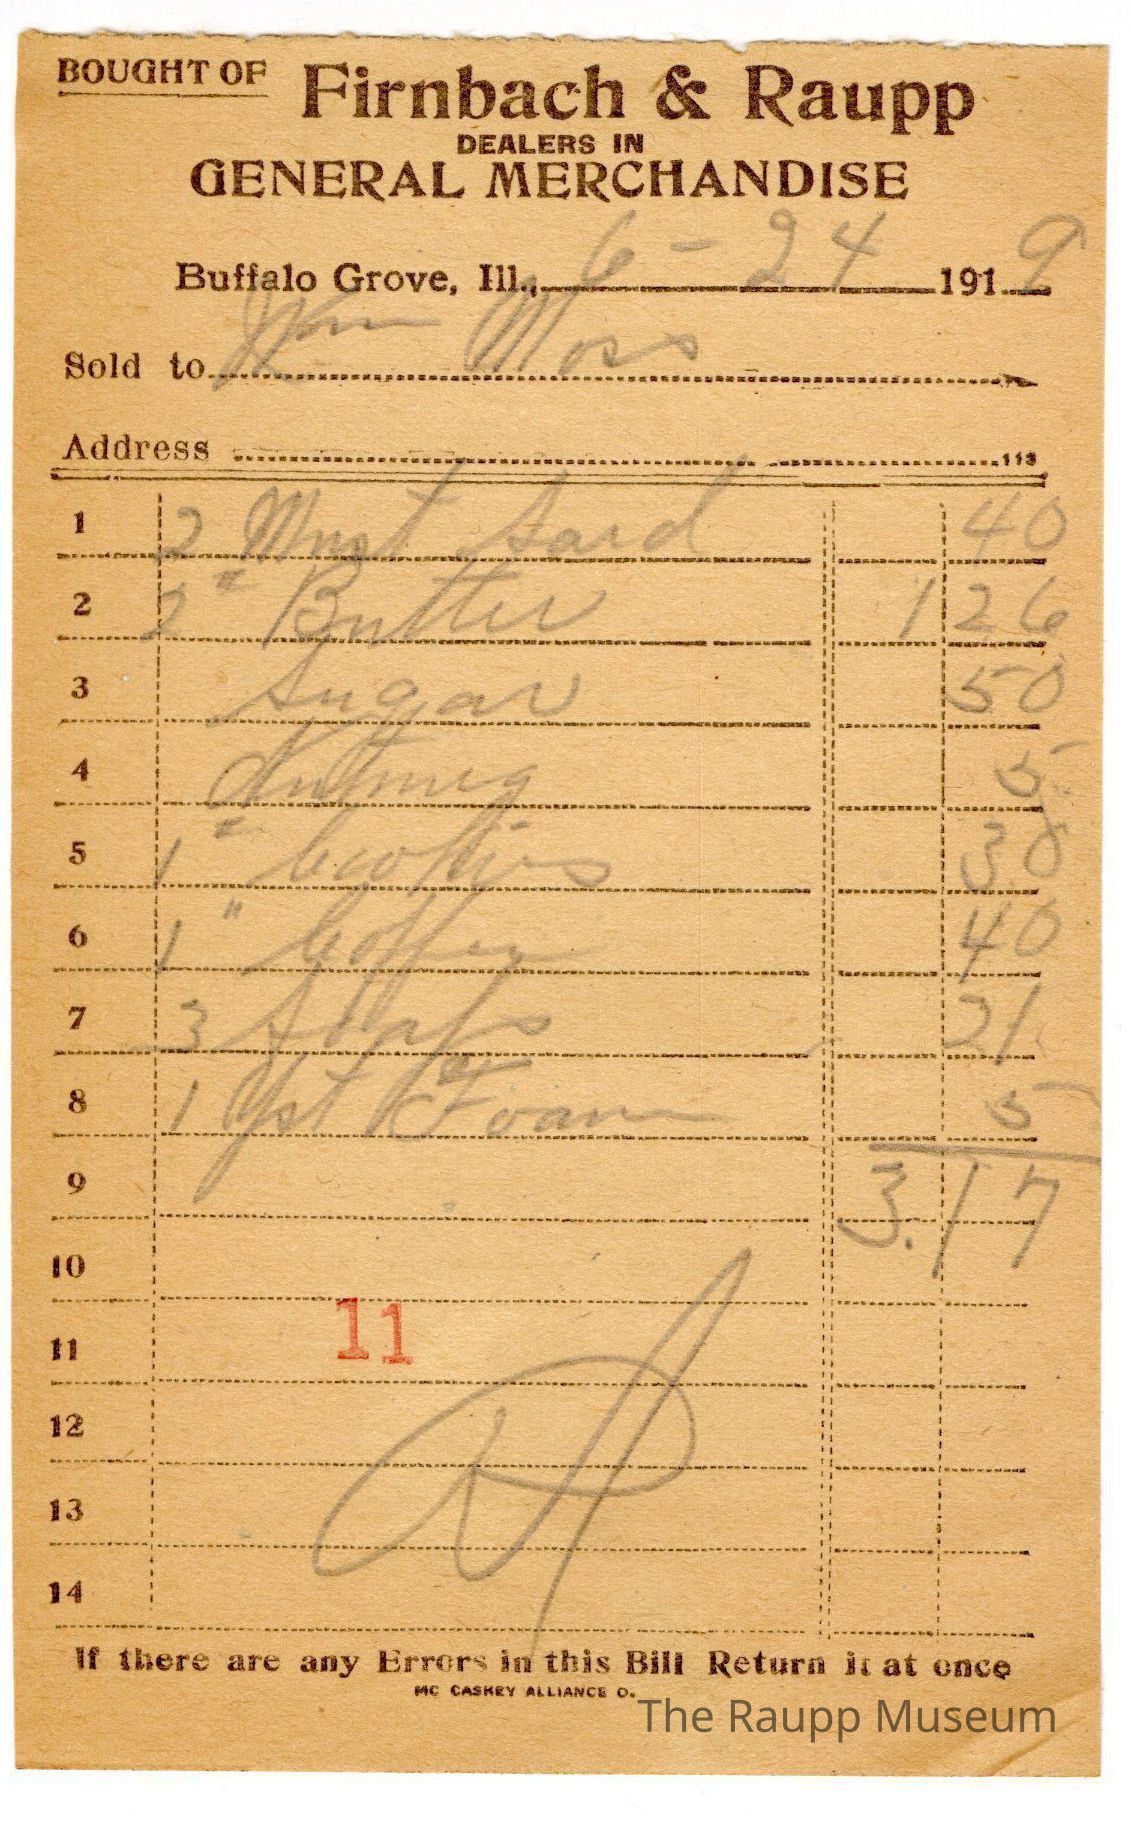 BOUGHT OF Firnbach & Raupp
DEALERS IN
GENERAL MERCHANDISE
Buffalo Grove, Ill., 6-24 1919
Sold to Wm Moss
Address 113
1 2 Must Sard 40
2 2# Butter 1 26
3 Sugar 50
4 Nutmeg 5
5 1# Cookies 30
6 1 " Coffee 40
7 3 Soaps 21
8 1 Yst Foam 5
9 3.17
10
11 11
12
13
14
If there are any Errors in this Bill Return it at once
MC CASKEY ALLIANCE O.
The Raupp Museum